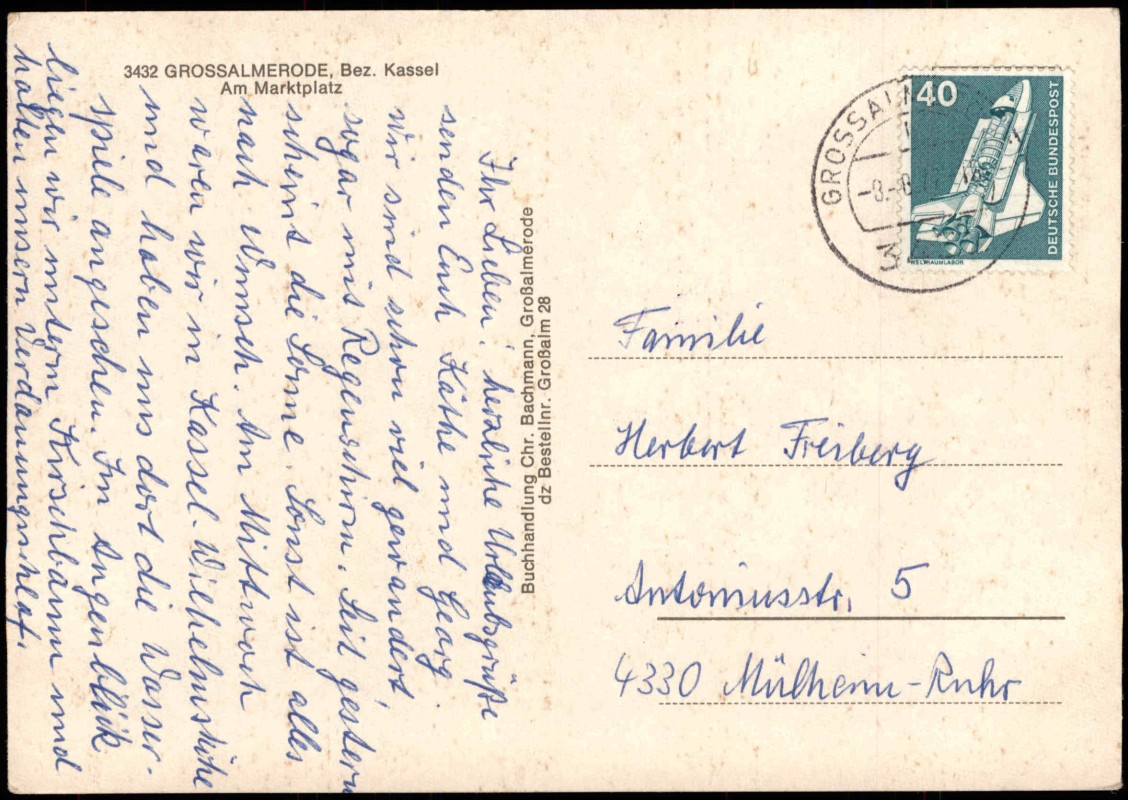 3432 GROSSALMERODE, Bez. Kassel
Am Marktplatz
Ihr Lieben! herzliche Urlaubsgrüße
senden Euch Käthe und Georg.
wir sind schon viel gewandert,
sogar mit Regenschirm. Seit gestern
scheint die Sonne. Sonst ist alles
nach Wunsch. Am Mittwoch
waren wir in Kassel-Wilhelmshöhe
und haben uns dort die Wasser-
spiele angesehen. Im Augenblick
liegen wir unterm Kirschbaum und
halten unsern Verdauungsschlaf.
Buchhandlung Chr. Bachmann, Großalmerode
dz Bestellnr. Großalm 28
GROSSAL
-8.-8.
3
40
DEUTSCHE BUNDESPOST
WELTRAUMLABOR
Familie
Herbert Freiberg
Antoniusstr. 5
4330 Mülheim-Ruhr